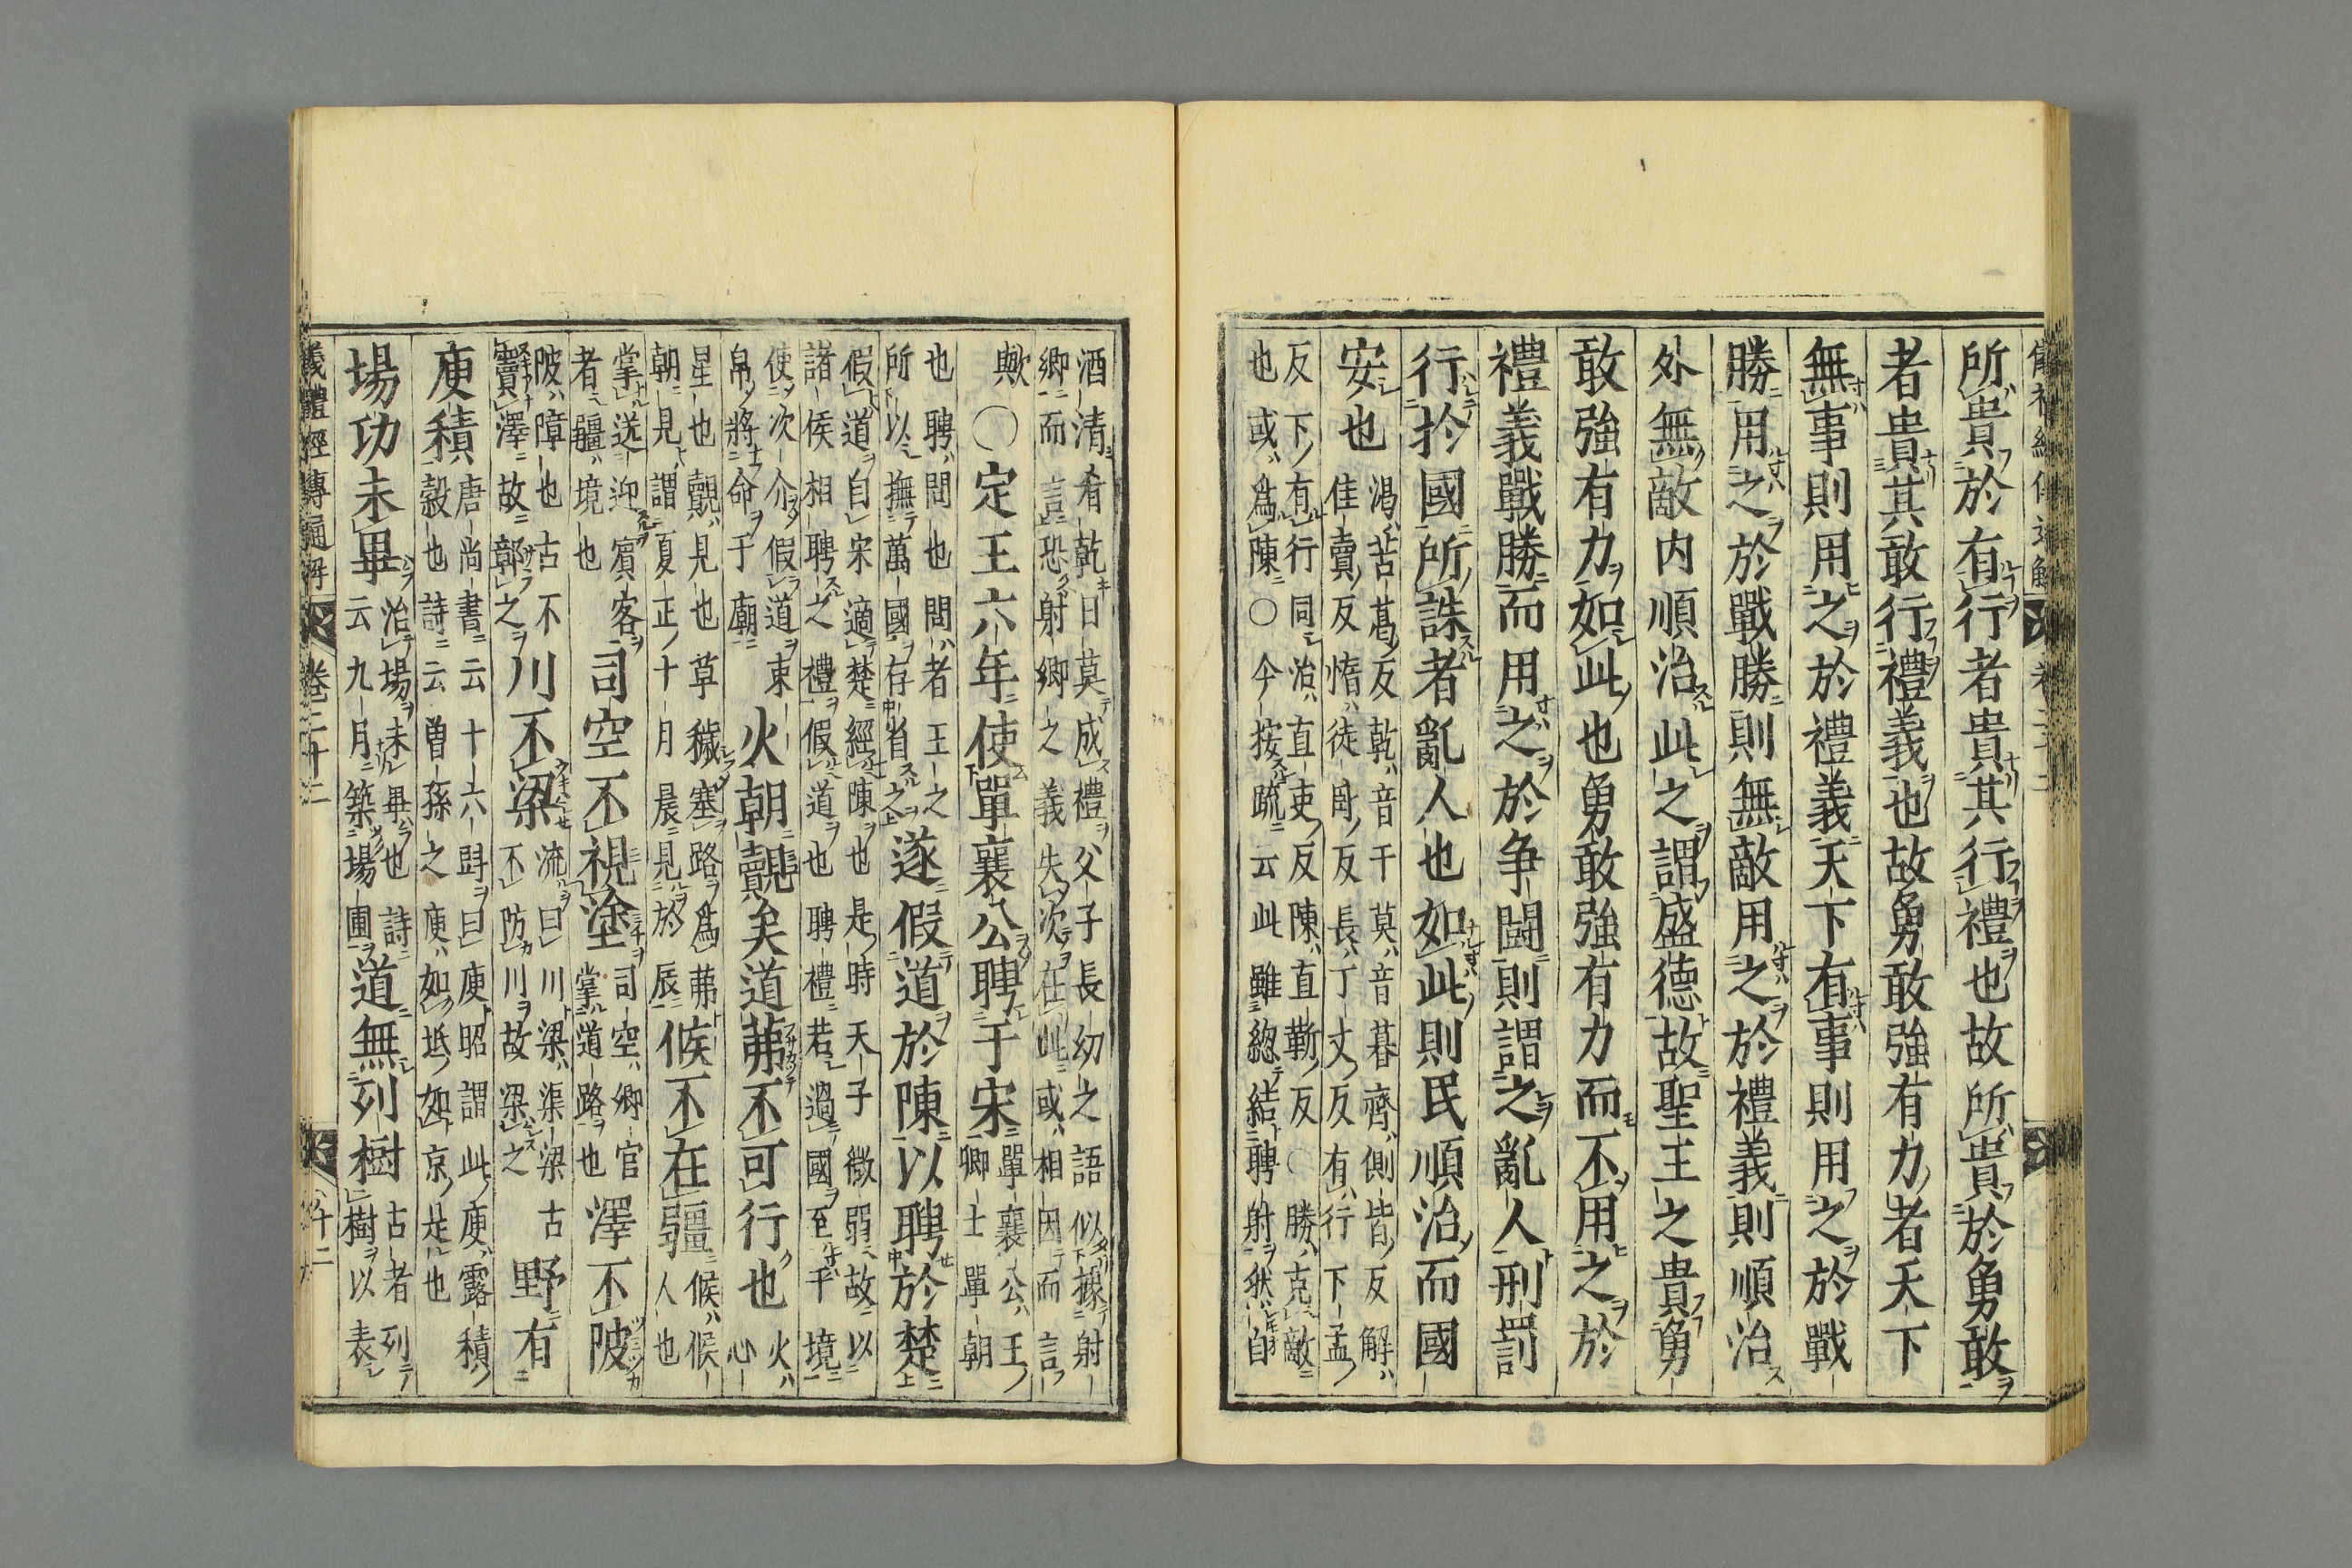 所貴於有行者貴其行禮也故所貴於勇敢
者貴其敢行禮義也故勇敢強有力者天下
無事則用之於禮義天下有事則用之於戰
勝用之於戰勝則無敵用之於禮義則順治
外無敵内順治此之謂盛德故聖王之貴勇
敢強有力如此也勇敢強有力而不用之於
禮義戰勝而用之於争鬪則謂之亂人刑罰
行於國所誅者亂人也如此則民順治而國
安也
渴苦葛反乾音干莫音暮齊側皆反解
佳賣反惰徒臥反長丁丈反有行下孟
反下有行同治直吏反陳直勒反○勝克敵
也或爲陳○今按疏云此雖總結聘射然自
酒清肴乾日莫成禮父子長幼之語似據射
卿而言恐射卿之義失次在此或相因而言
歟○定王六年使單襄公聘于宋
單襄公王
卿士單朝
也聘問也問者王之
所以撫萬國存省之
遂假道於陳以聘於楚
假道自宋適楚經陳也是時天子微弱故以
諸侯相聘之禮假道也聘禮若過國至于境
使次介假道束
帛將命于廟
火朝覿矣道茀不可行也
火
心
星也覿見也草穢塞路爲茀
朝見謂夏正十月晨見於辰
候不在疆
候候
人也
掌送迎賓客
者疆境也
司空不視塗
司空卿官
掌道路也
澤不陂
陂障也古不
竇澤故鄣之
川不梁
流曰川梁渠梁古
不防川故梁之
野有
庾積
唐尚書云十六斗曰庾昭謂此庾露積
穀也詩云曾孫之庾如坻如京是也
場功未畢
治場未畢也詩
云九月築場圃
道無列樹
古者列
樹以表
儀禮經傳通解 卷二十二 十二